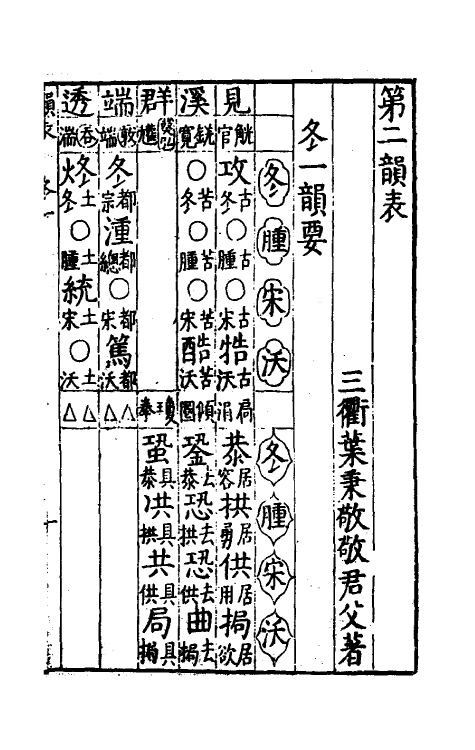 第二韻表
三衢葉秉敬敬君父著
冬一韻要
冬 腫 宋 沃 冬 腫 宋 沃
見 觥官 攻古冬 ○古腫 ○古宋 牿古沃 扃涓 恭居容 拱居勇 供居用 挶居欲
溪 觥寬 ○苦冬 ○苦腫 ○苦宋 酷苦沃 傾圈 銎去恭 恐去拱 恐去供 曲去挶
群 瓊拳 蛩具恭 洪具拱 共具供 局具挶
端 敦端 冬都宗 湩都總 ○都宋 篤都沃 △△
透 吞湍 炵土冬 ○土腫 統土宋 ○土沃 △△
韻表 冬一 一